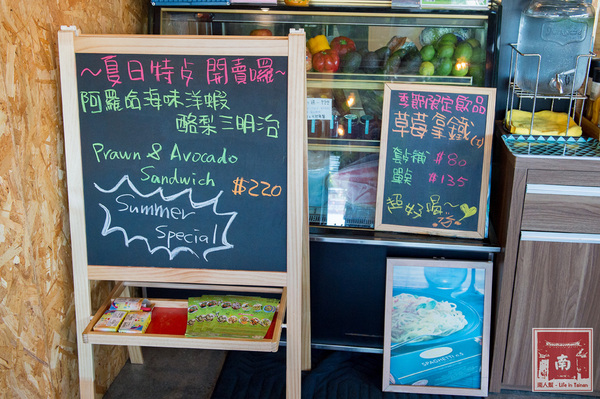 ～夏日特点 開賣囉～
阿羅哈海味洋蝦
酪梨三明治
Prawn & Avocado
Sandwich $220
Summer
Special
季節限定飲品
草莓拿鐵
$80
單點 $135
超好喝～
SPAGHETTI
南
南人幫 - Life in Tainan